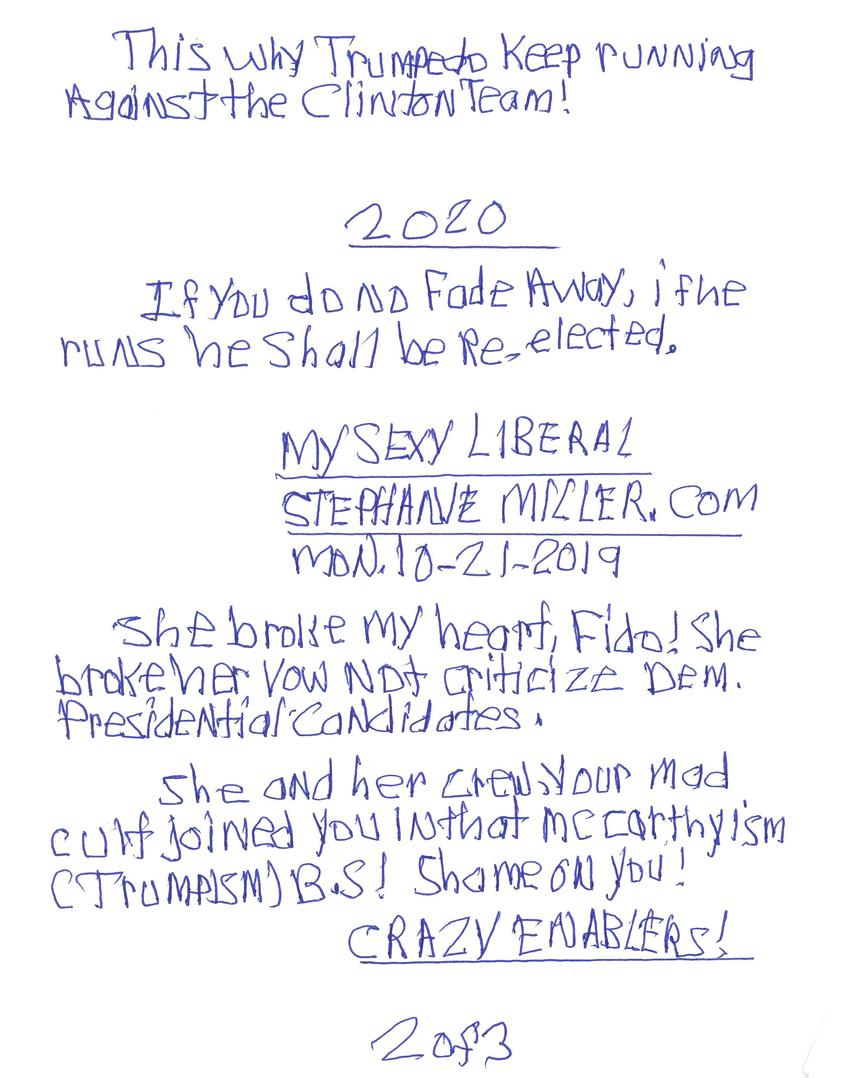 This why Trumpedo Keep running
Against the Clinton Team!
2020
If you do no Fade Away, if he
runs he Shall be Re-elected.
MY SEXY LIBERAL
STEPHANIE MILLER. COM
MON. 10-21-2019
She broke my heart, Fido! She
broke her vow Not criticize Dem.
Presidential Candidates.
She and her crew, your mad
cult joined you in that mccarthyism
(TRUMPISM) B.S! Shame on you!
CRAZY ENABLERs!
2 of 3